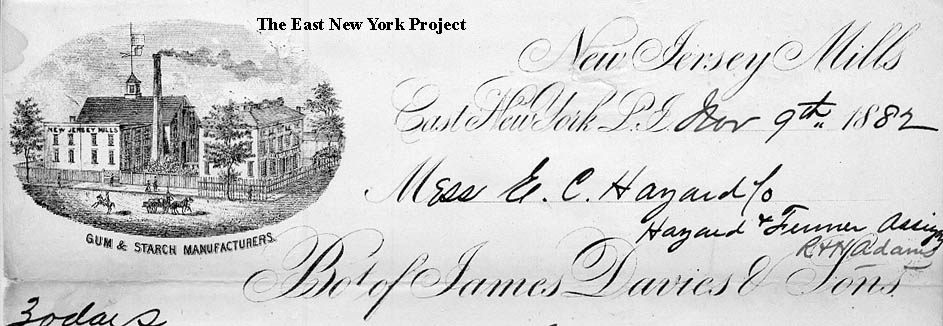 The East New York Project
New Jersey Mills
East New York L.I. Nov 9th 1882
NEW JERSEY MILLS
Mess E. C. Hazard Co
Hazard & Fenner Assig
R H Adams
GUM & STARCH MANUFACTURERS.
Bot of James Davies & Sons
30 days